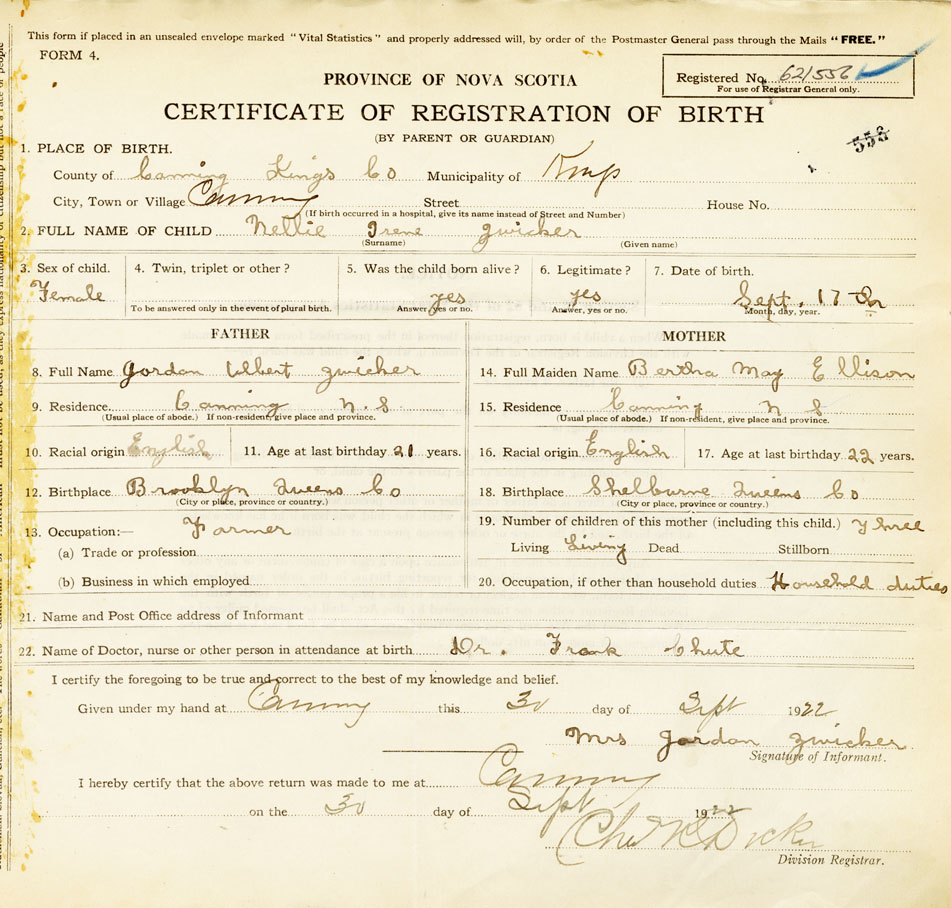 This form if placed in an unsealed envelope marked "Vital Statistics" and properly addressed will, by order of the Postmaster General pass through the Mails "FREE."
FORM 4.
PROVINCE OF NOVA SCOTIA
Registered No. 621556
For use of Registrar General only.
CERTIFICATE OF REGISTRATION OF BIRTH
(BY PARENT OR GUARDIAN)
553
1. PLACE OF BIRTH.
County of Canning Kings Co Municipality of Kings
City, Town or Village Canning Street House No.
(If birth occurred in a hospital, give its name instead of Street and Number)
2. FULL NAME OF CHILD Nellie Irene Zwicker
(Surname) (Given name)
3. Sex of child. 4. Twin, triplet or other? 5. Was the child born alive? 6. Legitimate? 7. Date of birth.
Female yes yes Sept. 17
To be answered only in the event of plural birth. Answer, yes or no. Answer, yes or no. Month, day, year.
FATHER MOTHER
8. Full Name Gordon Albert Zwicker 14. Full Maiden Name Bertha May Ellison
9. Residence Canning N.S 15. Residence Canning N S
(Usual place of abode.) If non-resident, give place and province. (Usual place of abode.) If non-resident, give place and province.
10. Racial origin English 11. Age at last birthday 21 years. 16. Racial origin English 17. Age at last birthday 22 years.
12. Birthplace Brooklyn Queens Co 18. Birthplace Shelburne Queens Co
(City or place, province or country.) (City or place, province or country.)
13. Occupation:— Farmer 19. Number of children of this mother (including this child.) Three
(a) Trade or profession Living Living Dead Stillborn
(b) Business in which employed 20. Occupation, if other than household duties Household duties
21. Name and Post Office address of Informant
22. Name of Doctor, nurse or other person in attendance at birth Dr. Frank Chute
I certify the foregoing to be true and correct to the best of my knowledge and belief.
Given under my hand at Canning this 30 day of Sept 1922
Mrs Gordon Zwicker
Signature of Informant.
I hereby certify that the above return was made to me at Canning
on the 30 day of Sept 1922
Division Registrar.